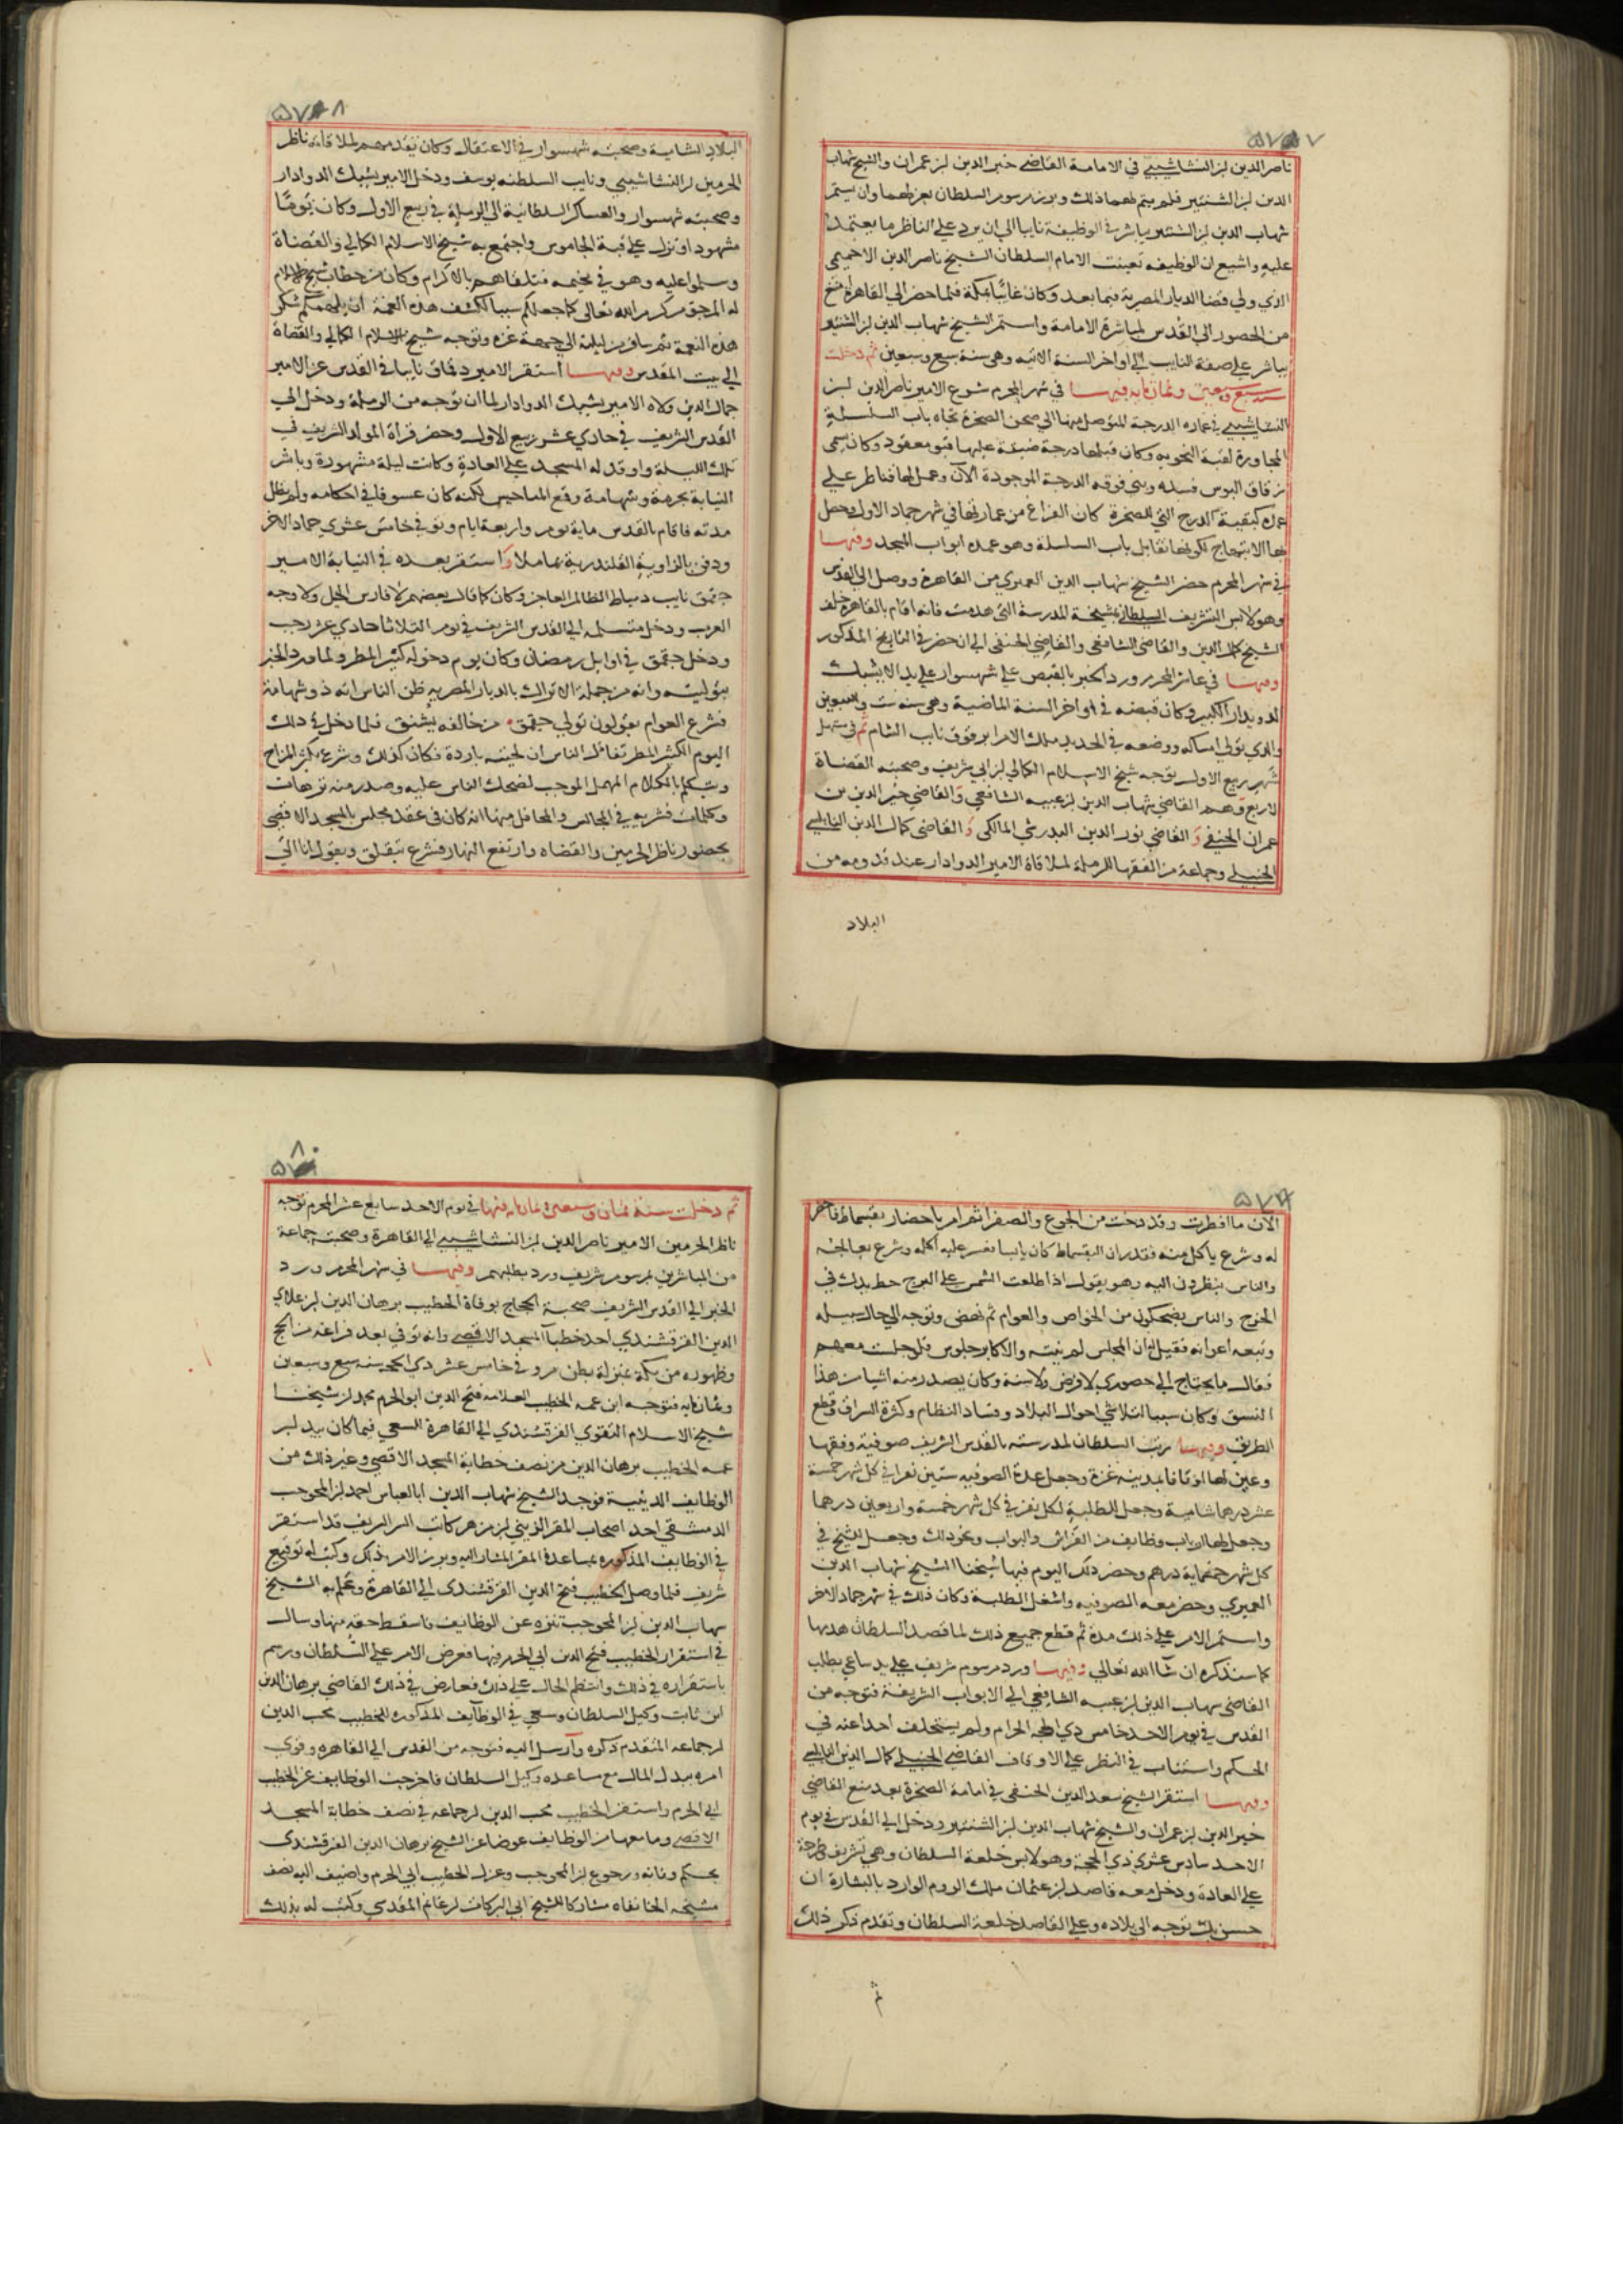 ٥٧٧
ناصر الدين ابن النشاشيبي في الامامة القاضي خير الدين ابن عمران والشيخ شهاب
الدين ابن الشنتير فلم يتم لهما ذلك وبرز مرسوم السلطان بعزلهما وان يستمر
شهاب الدين ابن الشنتير يباشر في الوظيفة نايبا الي ان يرد علي الناظر ما يعتمد
عليه واشيع ان الوظيفه تعينت الامام السلطان الشيخ ناصر الدين الاخميمي
الذي ولي قضا الديار المصرية فيما بعد وكان غائبا بمكة فلما حضر الي القاهرة امتنع
من الحضور الي القدس لمباشرة الامامة واستمر الشيخ شهاب الدين ابن الشنتير
يباشر علي صفة النايب الي اواخر السنة الاتيه وهي سنة سبع وسبعين ثم دخلت
سنة سبع وسبعين وثمانمايه فيهـا في شهر المحرم شرع الامير ناصر الدين ابن
النشاشيبي في عمارة الدرجة المتوصل منها الي صحن الصخرة تجاه باب السلسلة
المجاورة لقبة النحويه وكان قبلها درجة ضيقة عليها قبو معقود وكان يسمي
زقاق البوس فسده وبني فوقه الدرجة الموجودة الآن وعمل لها قناطر علي
عمد كبقية الدرج التي للصخرة كان الفراغ من عمارتها في شهر جماد الاول وحصل
بها الابتهاج لكونها تقابل باب السلسلة وهو عمدة ابواب المسجد وفيهـا
في شهر المحرم حضر الشيخ شهاب الدين العميري من القاهرة ووصل الي القدس
وهو لابس التشريف السلطاني بمشيخة المدرسة التي هدمت فانه اقام بالقاهرة خلف
الشيخ كمال الدين والقاضي الشافعي والقاضي الحنفي الي ان حضر في التاريخ المذكور
وفيهـا في عاشر المحرم ورد الخبر بالقبض علي شهسوار علي يد الامير يشبك
الدويدار الكبير وكان قبضه في اواخر السنة الماضية وهي سنة ست وسبعين
والذي تولي امساكه ووضعه في الحديد ملك الامرا برقوق نايب الشام ثم في مستهل
شهر ربيع الاول توجه شيخ الاسلام الكمالي ابن ابي شريف وصحبته القضاة
الاربع وهم القاضي شهاب الدين ابن عبيه الشافعي والقاضي خير الدين بن
عمران الحنفي و القاضي نور الدين البدرشي المالكي و القاضي كمال الدين النابلسي
الحنبلي وجماعة من الفقها للرملة لملاقاة الامير الدوادار عند قدومه من
البلاد
٥٧٨
البلاد الشامية وصحبته شهسوار في الاعتقال وكان تقدمهم لملاقاته ناظر
الحرمين ابن النشاشيبي ونايب السلطنه يوسف ودخل الامير يشبك الدوادار
وصحبته شهسوار والعساكر السلطانية الي الرملة في ربيع الاول وكان يوما
مشهودا ونزل علي قبة الجاموس واجتمع به شيخ الاسلام الكمالي والقضاة
وسلموا عليه وهو في مخيمه فتلقاهم بالاكرام وكان من خطاب شيخ الاسلام
له المرجو من كرم الله تعالى كما جعلكم سببا لكشف هذه الغمة ان يلهمكم شكر
هذه النعمة ثم سافر من ليلته الي جهة غزة وتوجه شيخ الاسلام الكمالي والقضاة
الي بيت المقدس وفيهـا استقر الامير دقماق نايبا في القدس عن الامير
جمال الدين ولاه الامير يشبك الدوادار لما ان توجه من الرملة ودخل الي
القدس الشريف في حادي عشر ربيع الاول وحضر قراة المولد الشريف في
تلك الليلة واوقد له المسجد علي العادة وكانت ليلة مشهودة وباشر
النيابة بحرمة وشهامة وقمع المناحيس لكنه كان عسوفا في احكامه ولم تطل
مدته فاقام بالقدس ماية يوم واربعة ايام وتوفي في خامس عشري جماد الاخر
ودفن بالزاوية القلندرية بماملا واستقر بعده في النيابة الامير
جقمق نايب دمياط الظالم العاجز وكان كما قال بعضهم لا فارس الخيل ولا وجه
العرب ودخل متسلمه الي القدس الشريف في يوم الثلاثا حادي عشر رجب
ودخل جقمق في اوايل رمضان وكان يوم دخوله كثير المطر ولما ورد الخبر
بتوليته وانه من جملة الاتراك بالديار المصريه ظن الناس انه ذو شهامة
فشرع العوام يقولون تولي جقمق من خالفه يشنق فلما دخل في ذلك
اليوم الكثير المطر تفاءل الناس ان لحيته باردة فكان كذلك وشرع يكثر المزاح
ويتكلم بالكلام المهمل الموجب لضحك الناس عليه وصدر منه ترهات
وكلمات فشريه في المجالس والمحافل منها انه كان في عقد مجلس بالمسجد الاقصي
بحضور ناظر الحرمين والقضاه وارتفع النهار فشرع يتقلق ويقول انا الي
٥٧٩
الان ما افطرت وقد دخت من الجوع والصفرا ثم امر باحضار بقسماط فاحضر
له وشرع ياكل منه فقدر ان البقسماط كان يابسا فعسر عليه اكله وشرع يعالجه
والناس ينظرون اليه وهو يقول اذا طلعت الشمس علي البرج حط يدك في
الخرج والناس يضحكون من الخواص والعوام ثم نهض وتوجه الي حال سبيله
وتبعه اعوانه فقيل له ان المجلس لم يتم والاكابر جلوس فلو جلست معهم
فقال ما يحتاج الي حضوري لا فرض ولا سنة وكان يصدر منه اشيا من هذا
النسق وكان سببا لتلاشي احوال البلاد وفساد النظام وكثرة السراق وقطع
الطريق وفيهـا رتب السلطان لمدرسته بالقدس الشريف صوفية وفقها
وعين لها اوقافا بمدينة غزة وجعل عدة الصوفيه ستين نفرا في كل شهر خمسة
عشر درهما شامية وجعل للطلبة لكل نفر في كل شهر خمسة واربعين درهما
وجعل لها ارباب وظايف من الفراش والبواب ونحو ذلك وجعل للشيخ في
كل شهر خمسماية درهم وحضر ذلك اليوم فيها شيخنا الشيخ شهاب الدين
العميري وحضر معه الصوفيه واشغل الطلبة وكان ذلك في شهر جماد الاخر
واستمر الامر علي ذلك مدة ثم قطع جميع ذلك لما قصد السلطان هدمها
كما سنذكره ان شآ الله تعالي وفيهـا ورد مرسوم شريف علي يد ساعي بطلب
القاضي شهاب الدين ابن عبيه الشافعي الي الابواب الشريفة فتوجه من
القدس في يوم الاحد خامس ذي الحجة الحرام ولم يستخلف احدا عنه في
الحكم واستناب في النظر علي الاوقاف القاضي الحنبلي كمال الدين النابلسي
وفيهـا استقر الشيخ سعد الدين الحنفي في امامة الصخرة بعد منع القاضي
خير الدين ابن عمران والشيخ شهاب الدين ابن الشنتير ودخل الي القدس في يوم
الاحد سادس عشري ذي الحجة وهو لابس خلعة السلطان وهي تشريف وطرحة
علي العادة ودخل معه قاصد ابن عثمان ملك الروم الوارد بالبشارة ان
حسن بك توجه الي بلاده وعلي القاصد خلعة السلطان وتقدم ذكر ذلك
ثم
٥٨٠
ثم دخلت سنة ثمان وسبعين وثمانمايه فيها في يوم الاحد سابع عشر المحرم توجه
ناظر الحرمين الامير ناصر الدين ابن النشاشيبي الي القاهرة وصحبته جماعة
من المباشرين لمرسوم شريف ورد بطلبهم وفيهـا في شهر المحرم ورد
الخبر الي القدس الشريف صحبة الحجاج بوفاة الخطيب برهان الدين ابن علاي
الدين القرقشندي احد خطبآ المسجد الاقصي وانه توفي بعد فراغه من الحج
وظهوره من مكة بمنزلة بطن مرو في خامس عشر ذي الحجة سنة سبع وسبعين
وثمانمايه فتوجه ابن عمه الخطيب العلامه فتح الدين ابو الحرم محمد ابن شيخنا
شيخ الاسلام التقوي القرقشندي الي القاهرة للسعي فيما كان بيد ابن
عمه الخطيب برهان الدين من نصف خطابة المسجد الاقصي وغير ذلك من
الوظايف الدينية فوجد الشيخ شهاب الدين ابا العباس احمد ابن المحوجب
الدمشقي احد اصحاب المقر الزيني ابن مزهر كاتب السر الشريف قد استقر
في الوظايف المذكوره بمساعدة المقر المشار اليه وبرز الامر بذلك وكتب له توقيع
شريف فلما وصل الخطيب فتح الدين القرقشندي الي القاهرة وعلم به الشيخ
شهاب الدين ابن المحوجب تنزه عن الوظايف فاسقط حقه منها وسال
في استقرار الخطيب فتح الدين ابي الحرم فيها فعرض الامر علي السلطان ورسم
باستقراره في ذلك وانتظم الحال علي ذلك فعارض في ذلك القاضي برهان الدين
ابن ثابت وكيل السلطان وسعي في الوظايف المذكوره للخطيب محب الدين
ابن جماعه المتقدم ذكره وارسل اليه فتوجه من القدس الي القاهره وقوي
امره ببدل المال مع مساعدة وكيل السلطان فاخرجت الوظايف عن الخطيب
ابي الحرم واستقر الخطيب محب الدين ابن جماعه في نصف خطابة المسجد
الاقصي وما معها من الوظايف عوضا عن الشيخ برهان الدين القرقشندي
بحكم وفاته ورجوع ابن المحوجب وعزل الخطيب ابي الحرم واضيف اليه نصف
مشيخه الخانقاه مشاركا للشيخ ابي البركات ابن غانم المقدسي وكتب له بذلك